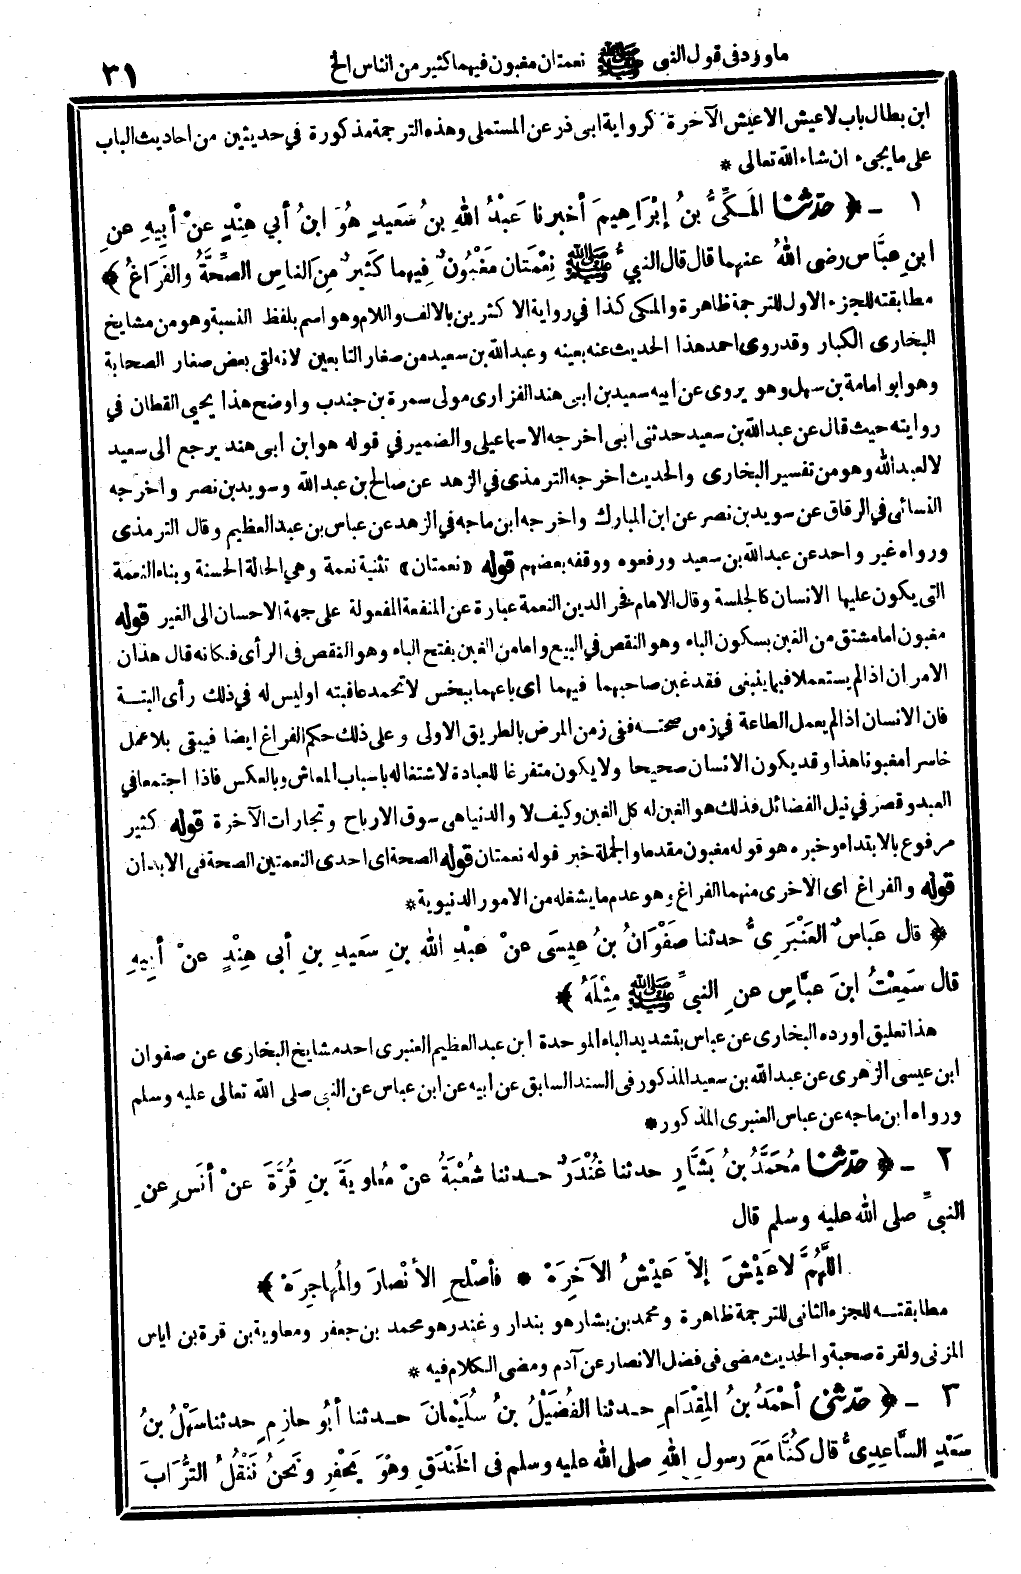 ما ورد في قول النبي ﷺ نعمتان مغبون فيهما كثير من الناس الخ
٣١
ابن بطال باب لا عيش الا عيش الآخرة كرواية ابى ذر عن المستملى وهذه الترجمة مذكورة في حديثين من احاديث الباب
على ما يجىء ان شاء الله تعالى *
١ ـ ﴿ حدّثنا المَكِّىُّ بنُ إبْرَاهِيمَ أخبرنا عَبْدُ اللهِ بنُ سَعيدٍ هُوَ ابنُ أبي هِنْدٍ عنْ أبِيهِ عنِ
ابنِ عبَّاس رضى اللهُ عنهما قال قال النبىُّ ﷺ نِعْمَتان مَغْبُونٌ فِيهما كَثيرٌ مِنَ الناسِ الصِّحَّةُ والفَرَاغُ ﴾
مطابقته للجزء الاول للترجمة ظاهرة والمكى كذا في رواية الاكثرين بالالف واللام وهو اسم بلفظ النسبة وهو من مشايخ
البخارى الكبار وقد روى احمد هذا الحديث عنه بعينه وعبد الله بن سعيد من صغار التابعين لانه لقى بعض صغار الصحابة
وهو ابو امامة بن سهل وهو يروى عن ابيه سعيد بن ابى هند الفزارى مولى سمرة بن جندب واوضح هذا يحيى القطان في
روايته حيث قال عن عبد الله بن سعيد حدثنى ابى اخرجه الاسماعيلى والضمير في قوله هو ابن ابى هند يرجع الى سعيد
لا لعبد الله وهو من تفسير البخارى والحديث اخرجه الترمذى في الزهد عن صالح بن عبد الله وسويد بن نصر واخرجه
النسائى في الرقاق عن سويد بن نصر عن ابن المبارك واخرجه ابن ماجه في الزهد عن عباس بن عبد العظيم وقال الترمذى
ورواه غير واحد عن عبد الله بن سعيد ورفعوه ووقفه بعضهم قوله «نعمتان» تثنية نعمة وهي الحالة الحسنة وبناء النعمة
التى يكون عليها الانسان كالجلسة وقال الامام فخر الدين النعمة عبارة عن المنفعة المفعولة على جهة الاحسان الى الغير قوله
مغبون اما مشتق من الغبن بسكون الباء وهو النقص في البيع واما من الغبن بفتح الباء وهو النقص فى الرأى فكانه قال هذان
الامران اذا لم يستعملا فيما ينبغى فقد غبن صاحبهما فيهما اى باعهما ببخس لا تحمد عاقبته او ليس له في ذلك رأى البتـة
فان الانسان اذا لم يعمل الطاعة في زمن صحتـه ففى زمن المرض بالطريق الاولى وعلى ذلك حكم الفراغ ايضا فيبقى بلا عمل
خاسرا مغبونا هذا وقد يكون الانسان صحيحا ولا يكون متفرغا للعبادة لاشتغاله باسباب المعاش وبالعكس فاذا اجتمعا في
العبد وقصر في نيل الفضائل فذلك هو الغبن له كل الغبن وكيف لا والدنيا هى سوق الارباح وتجارات الآخرة قوله كثير
مرفوع بالابتداء وخبره هو قوله مغبون مقدما والجملة خبر قوله نعمتان قوله الصحة اى احدى النعمتين الصحة فى الابدان
قوله والفراغ اى الاخرى منهما الفراغ وهو عدم ما يشغله من الامور الدنيوية *
﴿ قال عَبَّاسٌ العَنْبَرِىُّ حدثنا صَفْوَانُ بنُ عِيسَى عنْ عبْدِ اللهِ بنِ سَعِيدِ بنِ أبى هِنْدٍ عنْ أبِيهِ
قال سَمِعْتُ ابنَ عبَّاسٍ عنِ النبىِّ ﷺ مِثْلَهُ ﴾
هذا تعليق اورده البخارى عن عباس بتشديد الباء الموحدة ابن عبد العظيم العنبرى احد مشايخ البخارى عن صفوان
ابن عيسى الزهرى عن عبد الله بن سعيد المذكور فى السند السابق عن ابيه عن ابن عباس عن النبى صلى الله تعالى عليه وسلم
ورواه ابن ماجه عن عباس العنبرى المذكور *
٢ ـ ﴿ حدّثنا مُحَمَّدُ بنُ بَشَّارٍ حدثنا غُنْدَرٌ حـدثنا شُعْبَةُ عنْ مُعاوِيَةَ بنِ قُرَّةَ عنْ أنَسٍ عنِ
النبىِّ صلى الله عليه وسلم قال
اللَّهُمَّ لا عَيْشَ إلاَّ عَيْشُ الآخِرَةْ * فأصْلِحِ الأنْصارَ والمُهاجِرَةْ ﴾
مطابقتـه للجزء الثانى للترجمة ظاهرة ومحمد بن بشار هو بندار وغندر هو محمد بن جعفر ومعاوية بن قرة بن اياس
المزنى ولقرة صحبة والحديث مضى فى فضل الانصار عن آدم ومضى الكلام فيه *
٣ ـ ﴿ حدّثنى أحْمَدُ بنُ المِقْدَامِ حـدثنا الفُضَيْلُ بنُ سُلَيْمانَ حـدثنا أبُو حازِمٍ حدثنا سَهْلُ بنُ
سَعْدٍ السَّاعِدِىُّ قال كُنَّا مَعَ رسولِ اللهِ صلى الله عليه وسلم فى الخَنْدَقِ وهْوَ يَحْفِرُ ونَحنُ نَنْقُلُ التُّرَابَ